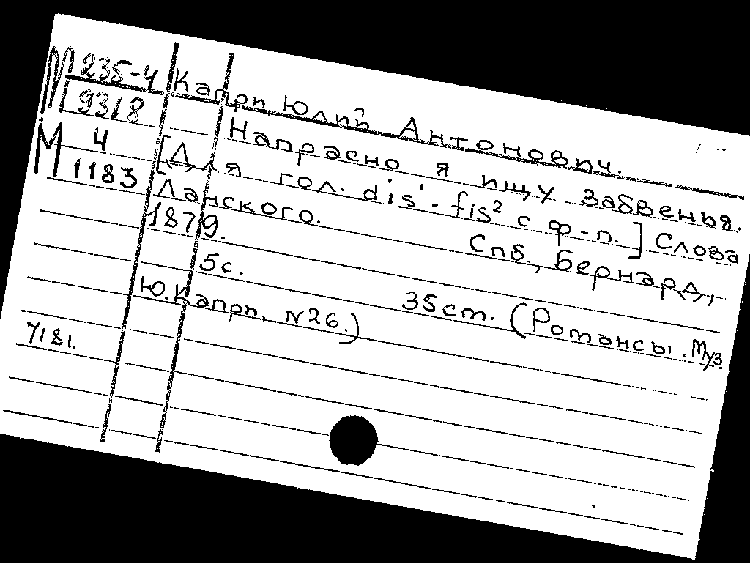 М 235-4
9318
М 4
1183
Капри Юлий Антонович.
Напрасно я ищу забвенья.
[Для гол. dis¹ - fis² с ф-п.] Слова
Ланского. Спб, Бернард,
1879.
5с. 35ст. (Романсы. Муз.
Ю. Капри. N26.)
7181.